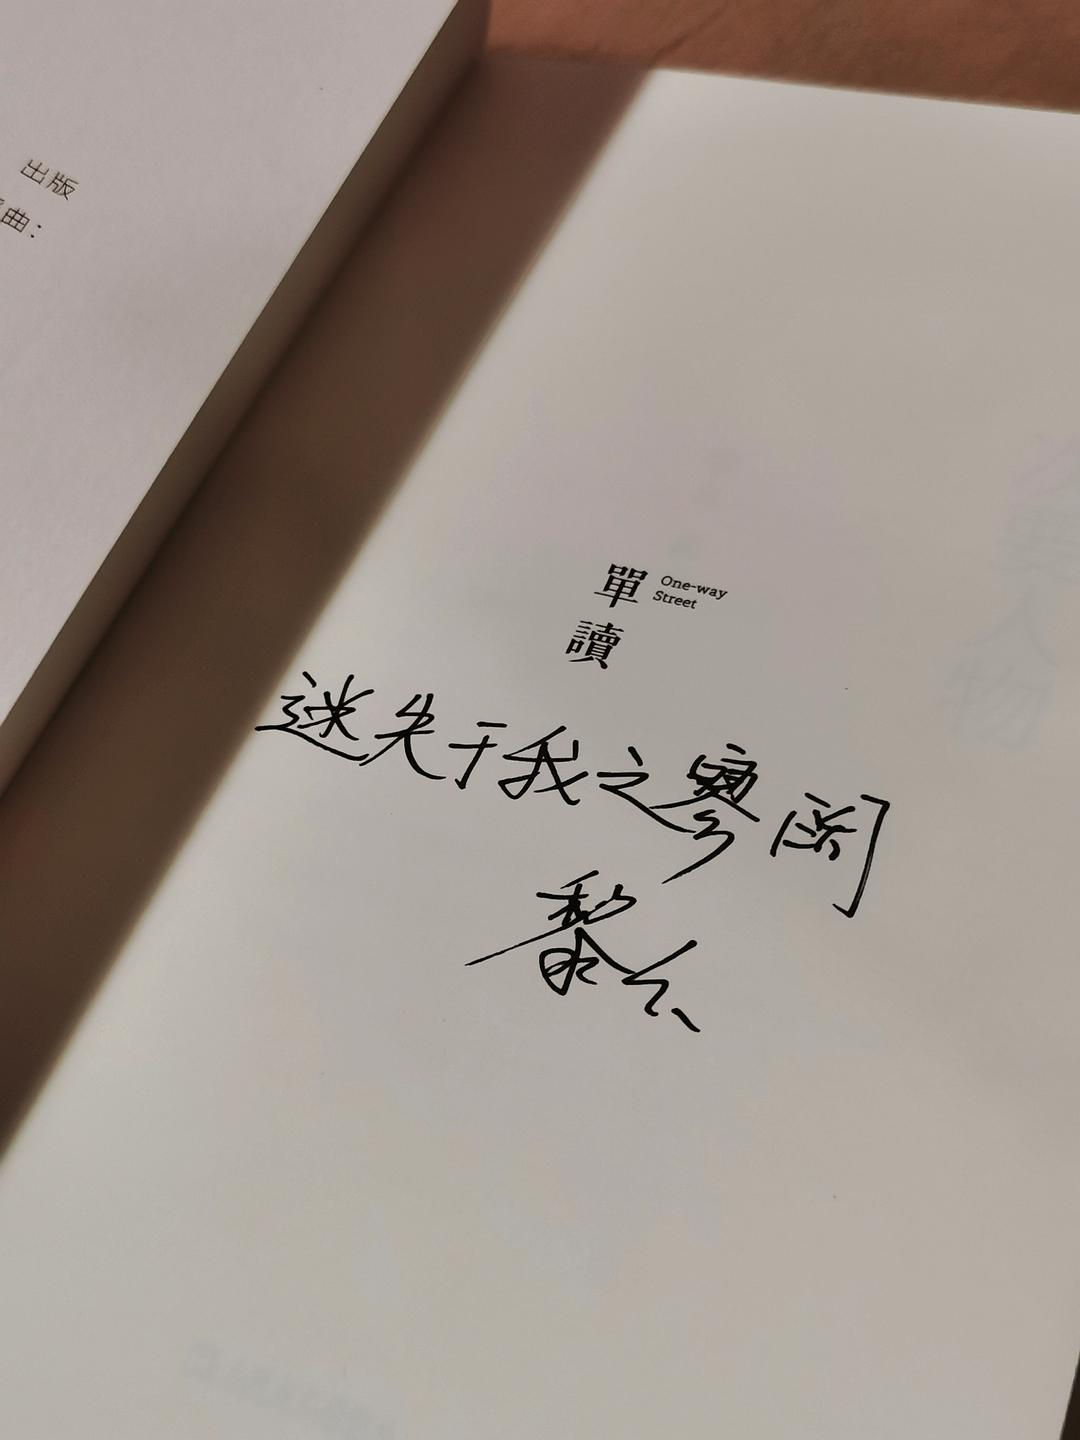 出版
曲：
單 One-way
讀 Street
迷失于我之寥阔
黎幺